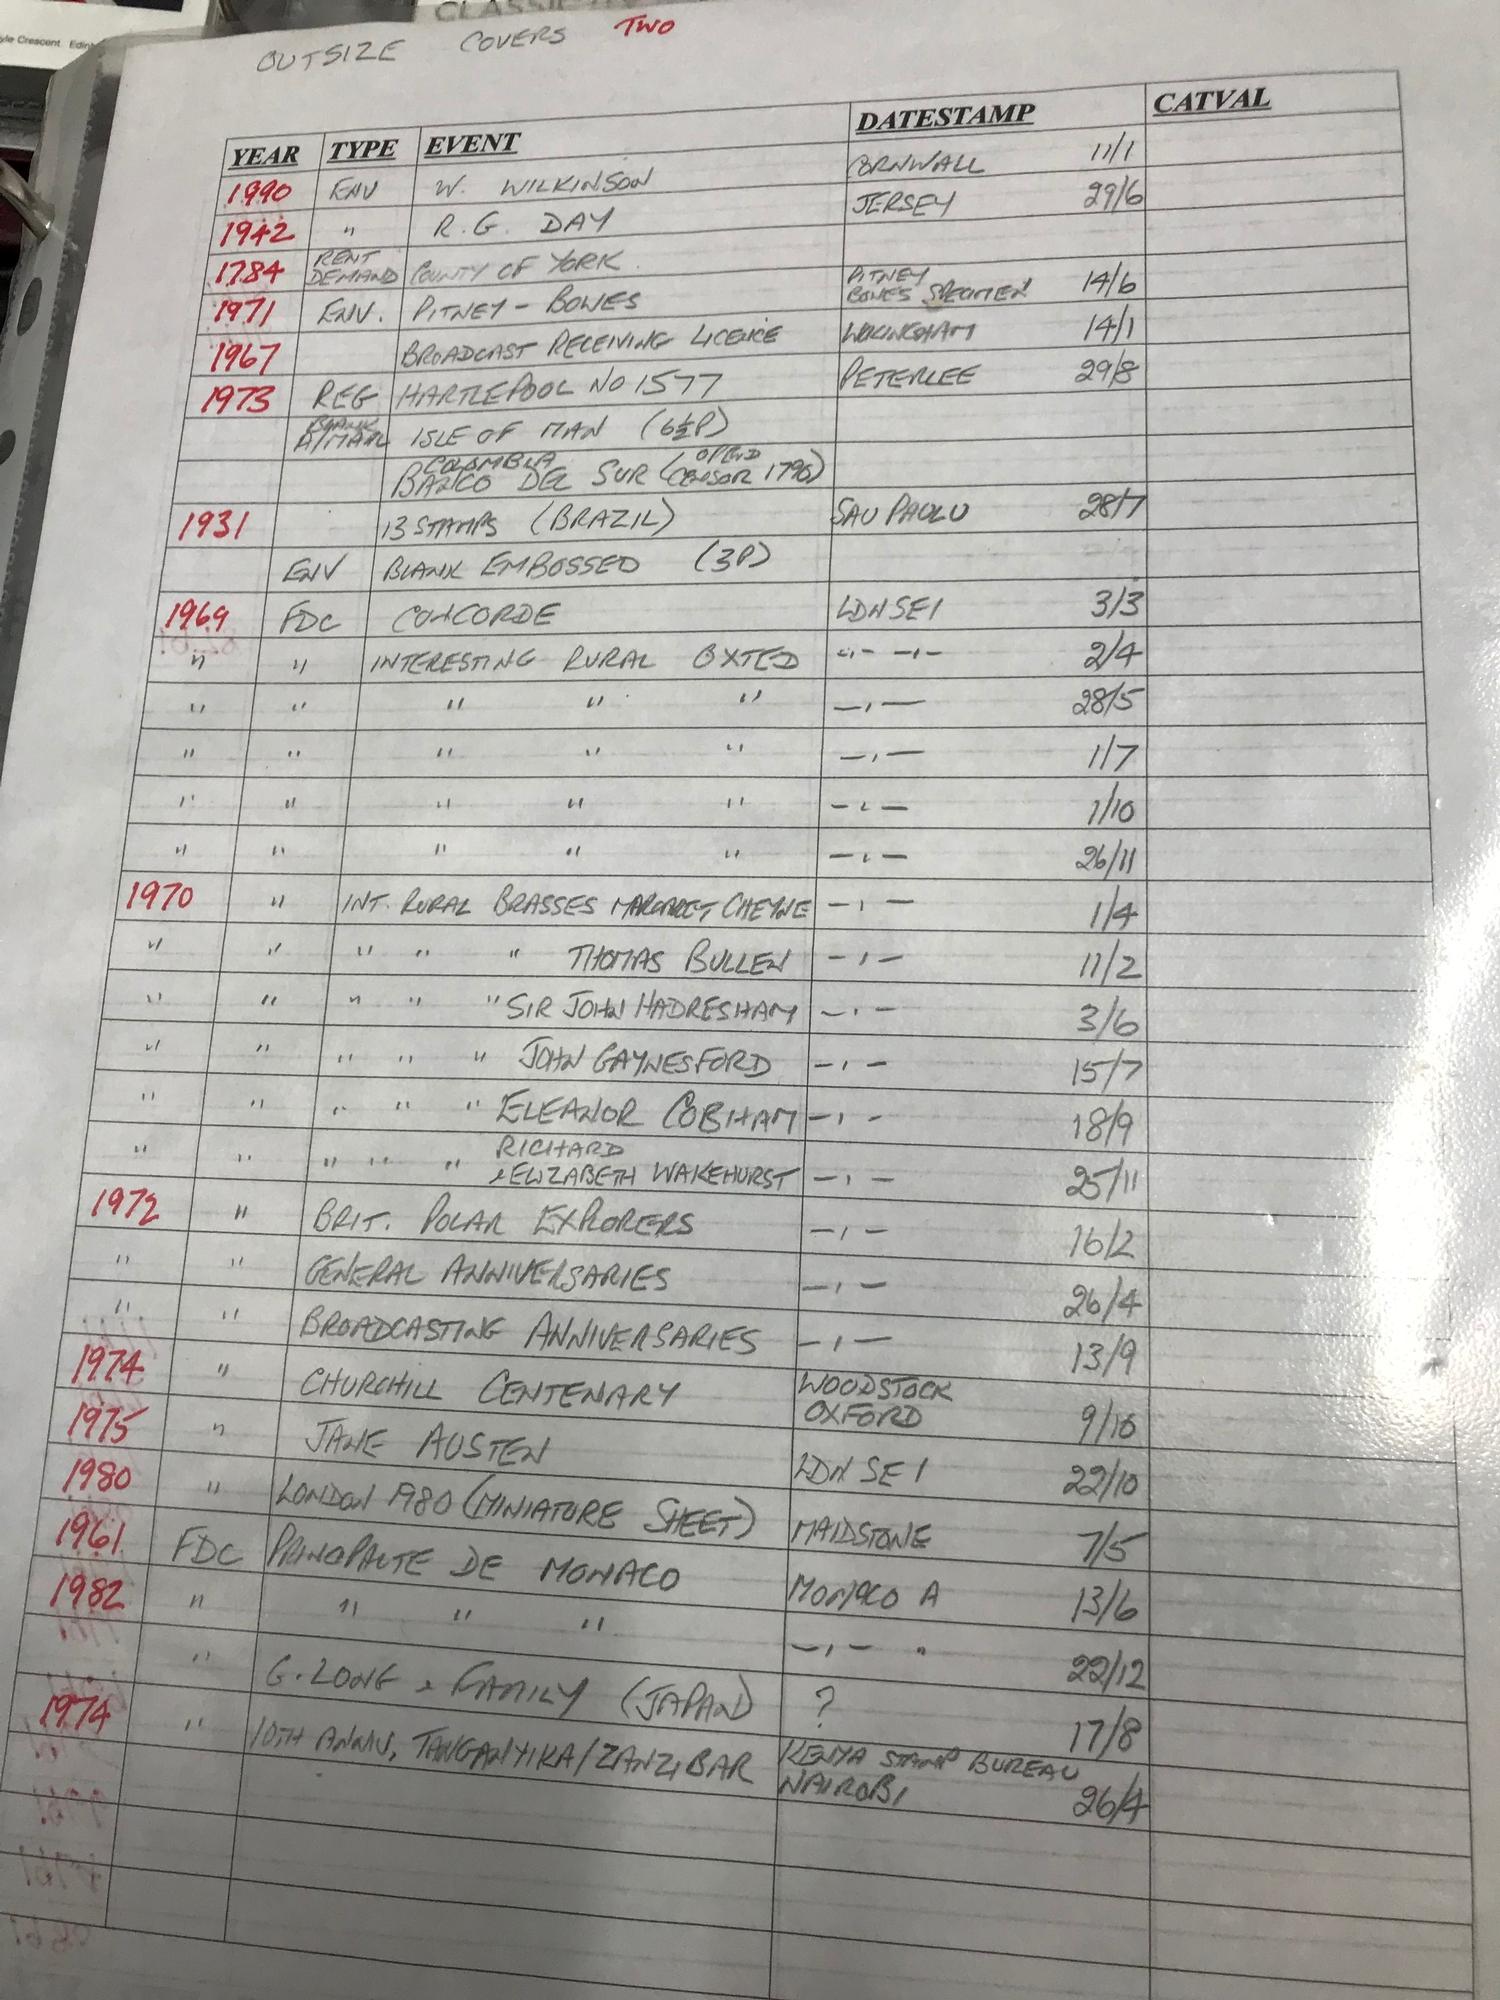 CLASSIC
yle Crescent Edin
OUTSIZE COVERS TWO
YEAR TYPE EVENT DATESTAMP CATVAL
1990 ENV W. WILKINSON CORNWALL 11/1
1942 " R.G. DAY JERSEY 29/6
1784 RENT DEMAND COUNTY OF YORK
1971 ENV. PITNEY - BOWES PITNEY BOWES SPECIMEN 14/6
1967 BROADCAST RECEIVING LICENCE WOKINGHAM 14/1
1973 REG HARTLEPOOL NO 1577 PETERLEE 29/8
BLANK A/MAIL ISLE OF MAN (6½P)
COLOMBIA BANCO DEL SUR (OPEND CENSOR 1796)
1931 13 STAMPS (BRAZIL) SAU PAOLO 28/7
ENV BLANK EMBOSSED (3P)
1969 FDC CONCORDE LDN SE1 3/3
" " INTERESTING RURAL OXTED -"- -"- 2/4
" " " " " -"- 28/5
" " " " " -"- 1/7
" " " " " -"- 1/10
" " " " " -"- 26/11
1970 " INT. RURAL BRASSES MARGARET CHEYNE -"- 1/4
" " " " " THOMAS BULLEN -"- 11/2
" " " " " SIR JOHN HADRESHAM -"- 3/6
" " " " " JOHN GAYNESFORD -"- 15/7
" " " " " ELEANOR COBHAM -"- 18/9
" " " " " RICHARD & ELIZABETH WAKEHURST -"- 25/11
1972 " BRIT. POLAR EXPLORERS -"- 16/2
" " GENERAL ANNIVERSARIES -"- 26/4
" " BROADCASTING ANNIVERSARIES -"- 13/9
1974 " CHURCHILL CENTENARY WOODSTOCK OXFORD 9/10
1975 " JANE AUSTEN LDN SE1 22/10
1980 " LONDON 1980 (MINIATURE SHEET) MAIDSTONE 7/5
1961 FDC PRINCIPAUTE DE MONACO MONACO A 13/6
1982 " " " " -"- " 22/12
" G. LONG & FAMILY (JAPAN) ? 17/8
1974 " 10TH ANNIV, TANGANYIKA/ZANZIBAR KENYA STAMP BUREAU NAIROBI 26/4